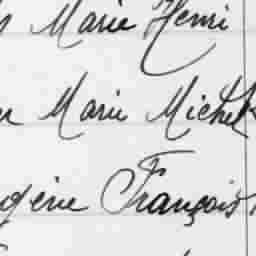 Marie Henri
Marie Michel
gène François